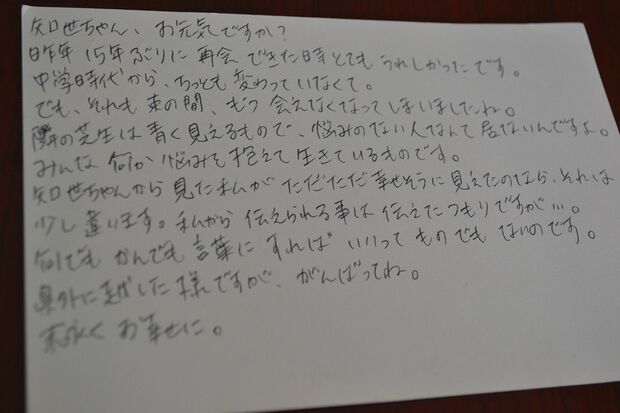 知世ちゃん、お元気ですか？
昨年15年ぶりに再会できた時とてもうれしかったです。
中学時代から、ちっとも変わっていなくて。
でも、それも束の間、もう会えなくなってしまいましたね。
隣の芝生は青く見えるもので、悩みのない人なんて居ないんですよ。
みんな何か悩みを抱えて生きているものです。
知世ちゃんから見た私がただただ幸せそうに見えたのなら、それは
少し違います。私から伝えられる事は伝えたつもりですが…。
何でもかんでも言葉にすればいいってものでもないのです。
県外に越した様ですが、がんばってね。
末永くお幸せに。